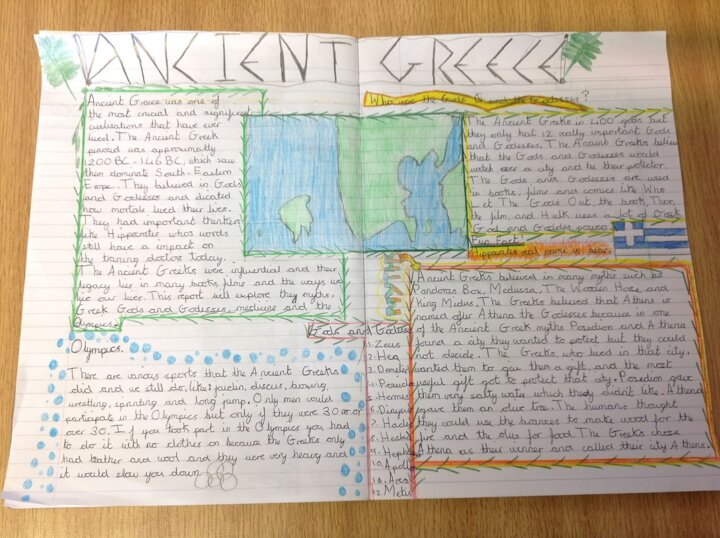 ANCIENT GREECE
Ancient Greece was one of
the most crucial and significant
civilisations that have ever
lived. The Ancient Greek
peroied was approximatly
1200 BC - 146 BC, which saw
them dominate South-Eastern
Erope. They believed in Gods
and Godesses and dicated
how mortals lived their lives.
They had important thinkers
like Hippocrates whos words
still have a impact on
the training doctors today.
The Ancient Greeks were influential and their
legacy lier in many books, films and the ways we
live our lives. This report will explore they myths,
Greek Gods and Godesses, medicine and the
Olympics.
Olympics.
There are various sports that the Ancient Greeks
did and we still do, like: javelin, discus, boxing,
wrestling, sprinting and long jump. Only men would
participate in the Olympics but only if they were 30 or
over 30. If you took part in the Olympics you had
to do it with no clothes on because the Greeks only
had leather and wood and they were very heavy and
it would slow you down.
Who were the Gods and the Godesses?
The Ancient Greeks in 400 gods but
they only had 12 really important Gods
and Godesses. The Ancient Greeks believed
that the Gods and Godesses would
watch over a city and be their protector.
The Gods and Godesses are used
in books, films and comics like Who
Let The Gods Out the book, Thor
the film and Hulk uses a lot of Greek
God and Goddes powers.
Fun Fact
Hippocrates real name is
Gods and Godesses
1. Zeus
2. Hera
3. Demeter
4.
5. Hermes
6.
7. Hades
8. Hestia
9.
10. Apollo
Ares
12. Metis
MYTHS
Ancient Greeks believed in many myths such as
Pandoras Box, Medussa, The Wooden Horse and
King Midus. The Greeks believed that Athens is
named after Athena the Godesses because in one
of the Ancient Greek myths Posidion and Athena
found a city they wanted to protect but they could
not decide. The Greeks, who lived in that city,
wanted them to give them a gift, and the most
useful gift got to protect that city. Posidion gave
them very salty water which they didn't like. Athena
gave them an olive tree. The humans thought
they could use the brances to make wood for the
fire and the olives for food. The Greeks chose
Athena as their winner and called their city Athens.